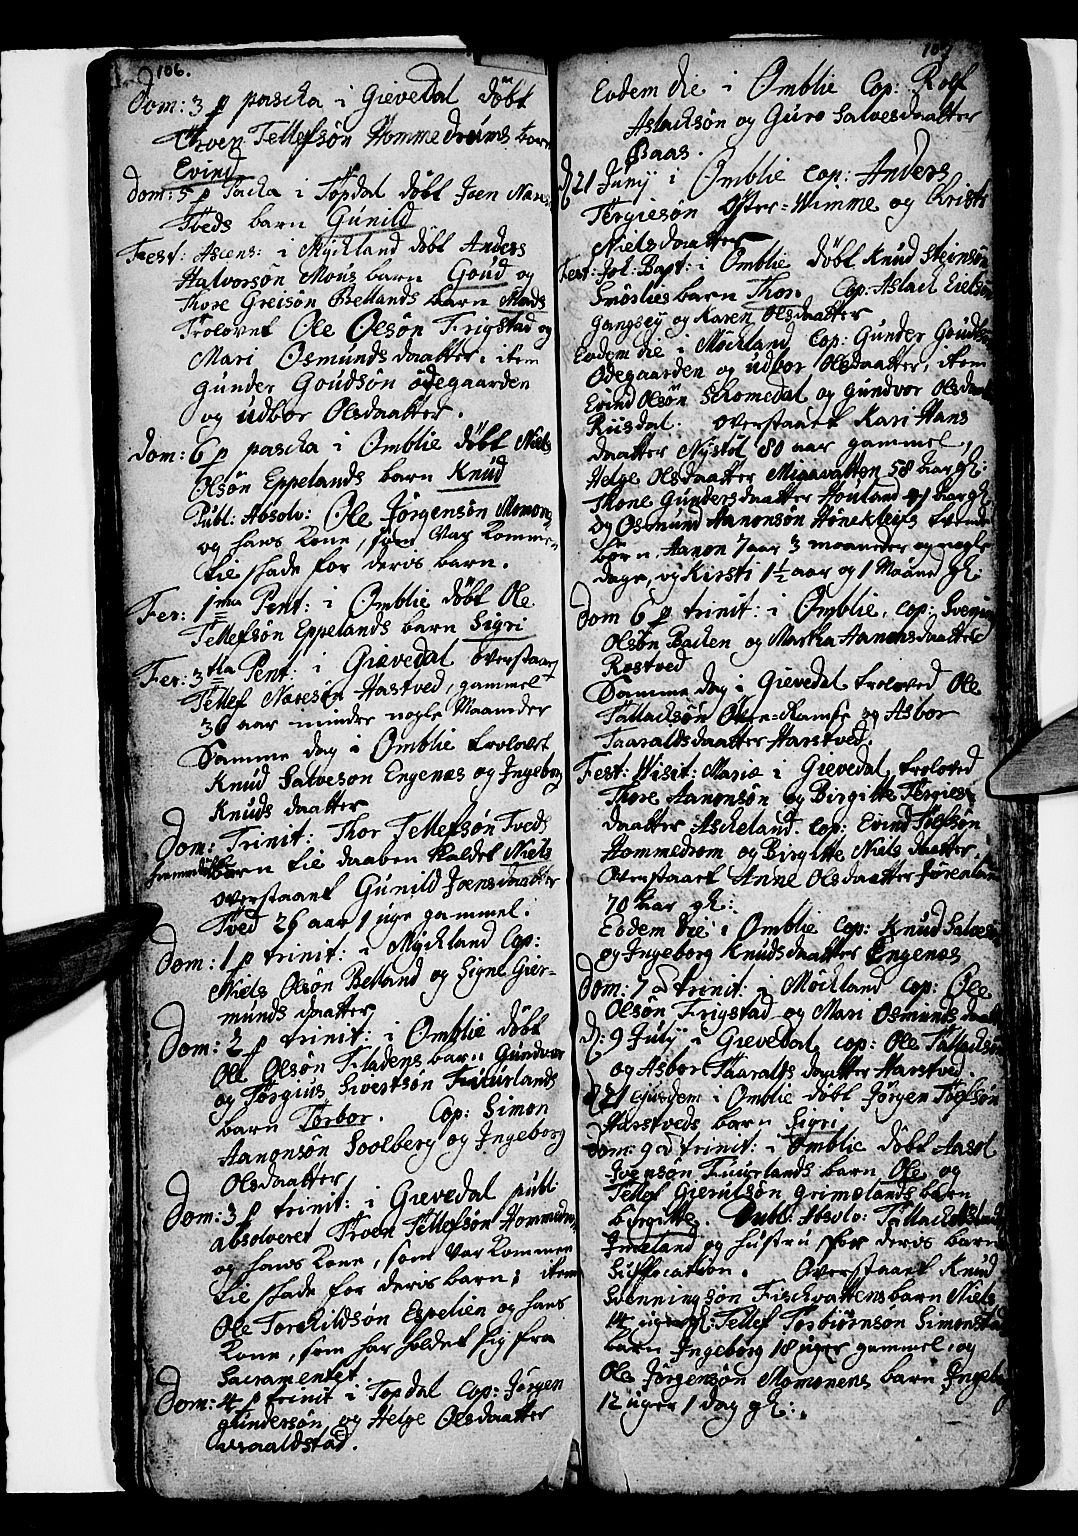 106.
Dom: 3 p pascha i Gievedal döbt
Troen Tellefsön Hommedroms barn
Evind
Dom: 5 p Pascha i Topdal döbt Joen
Tveds barn Gunild
Fest: Ascens: i Myckland döbt Anders
Halvorsön Mons barn Goud og
Thore Greisön Betlands barn Mads
Trolovet Ole Olsön Frigstad og
Mari Osmunds daatter. item
Gunder Goudsön ödegaarden
og Udbor Olsdaatter.
Dom: 6 p pascha i Omblie döbt Niels
Olsön Eppelands barn Knud
Publ: Absolv: Ole Jörgensön Momone
og hans Kone, som var kommen
til skade for deris barn.
Fer: 1ma Pent: i Omblie döbt Ole
Tellefsön Eppelands barn Sigri
Fer: 3tia Pent: i Gievedal overstaaet
Tellef Naresön Hastved, gammel
36 aar minder nogle Maander
Samme dag i Omblie trolovet
Knud Salveson Engenæs og Ingeborg
Knuds daatter
Dom: Trinit: Thor Tellefsön Tveds
hiemmedöbt barn til daaben kaldet Niels
overstaaet Gunild Joensdaatter
Tved 26 aar 1 uge gammel.
Dom: 1 p trinit: i Myckland Cop:
Niels Olsön Betland og Signe Gier-
munds daatter
Dom: 2 p trinit: i Omblie döbt
Ole Olsön Fladens barn Gundvor
og Torgius Sivertsön Fiuurlands
barn Torbor. Cop: Simon
Aanonsön Soelberg og Ingeborg
Olsdaatter
Dom: 3 p trinit: i Gievedal publ:
absolveret Troen Tellefsön Hommedrom
og hans Kone, som var kommen
til skade for deris barn; item
Ole Torckildsön Espelien og hans
Kone, som har holdet sig fra
Sacramentet
Dom: 4 p trinit i Topdal Cop: Jörgen
Gundersön og Helge Olsdaatter
Vraaldstad.
107
Eodem die i Omblie Cop: Rolf
Aslacksön og Guro Salvesdaatter
Baas.
D 21 Junij i Omblie Cop: Anders
Tergiesön Öfter-Wimme og Christi
Nielsdaatter
Fest: Joh: Bapt: i Omblie döbt Knud Steensön
Smöslies barn Thor. Cop: Aslach Eielsön
Gangsey og Karen Olsdaatter
Eodem die i Möckland Cop: Gunder Goudsön
Ödegaarden og Udbor Olsdaatter, item
Evind Olsön Skomedal og Gundvor Olsdaatter
Riisdal. overstaaet Kari Hans
daatter Nystöl 80 aar gammel,
Helge Olsdaatter Miaavatten 58 aar gl:
Thone Gundersdaatter Houland aar gl:
Og Osmund Aanonsön Hönekleifs tvende
börn. Aanon 7 aar 3 maander og nogle
dage, og Kirsti 1½ aar og 1 Maane gl:
Dom 6 p trinit: i Omblie, Cop:
Olsön Backen og Martha Aanonsdaatter
Rostved
Samme dag i Gievedal troloved Ole
Tallacksön Ofre-Ramse og Asbor
Taaraldsdaatter Harstved.
Fest: Visit: Mariæ i Gievedal, troloved
Thore Aanonsön og Birgitte Tergies-
daatter Askeland. Cop: Evind Toefsön
Hommedrom og Birgitte Niels daatter.
Overstaaet Anne Olsdaatter
70 aar gl:
Eodem die i Omblie Cop: Knud Salvesön
og Ingeborg Knudsdaatter Engenæs
Dom: 7 p trinit: i Möckland Cop: Ole
Olsön Frigstad og Mari Osmunds daatter
D: 9 July i Gievedal cop: Ole Tallacksön
og Asbor Taaralds daatter Harstved.
D 21 ejusdem i Omblie döbt Jörgen Toefsön
Harstveds barn Sigri
Dom: 9 p trinit: i Omblie döbt Aasol
Svensön Fiuurlands barn Ole og
Tellef Gierulsön Grimelands barn
Byrgitte. Publ: Absolv: Tallack
Imeland og hustru for deris barns
Suffocation. Overstaaet Knud
Svenningsön Fischvattens barn Niels
14 uger gl: Tellef Torbiörnsön Simonstad
barn Ingeborg 18 uger gammel, og
Ole Jörgensön Momonens barn Ingeborg
12 uger 1 dag gl:.